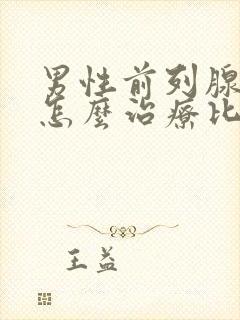 男性前列腺
怎麼治療比
王益